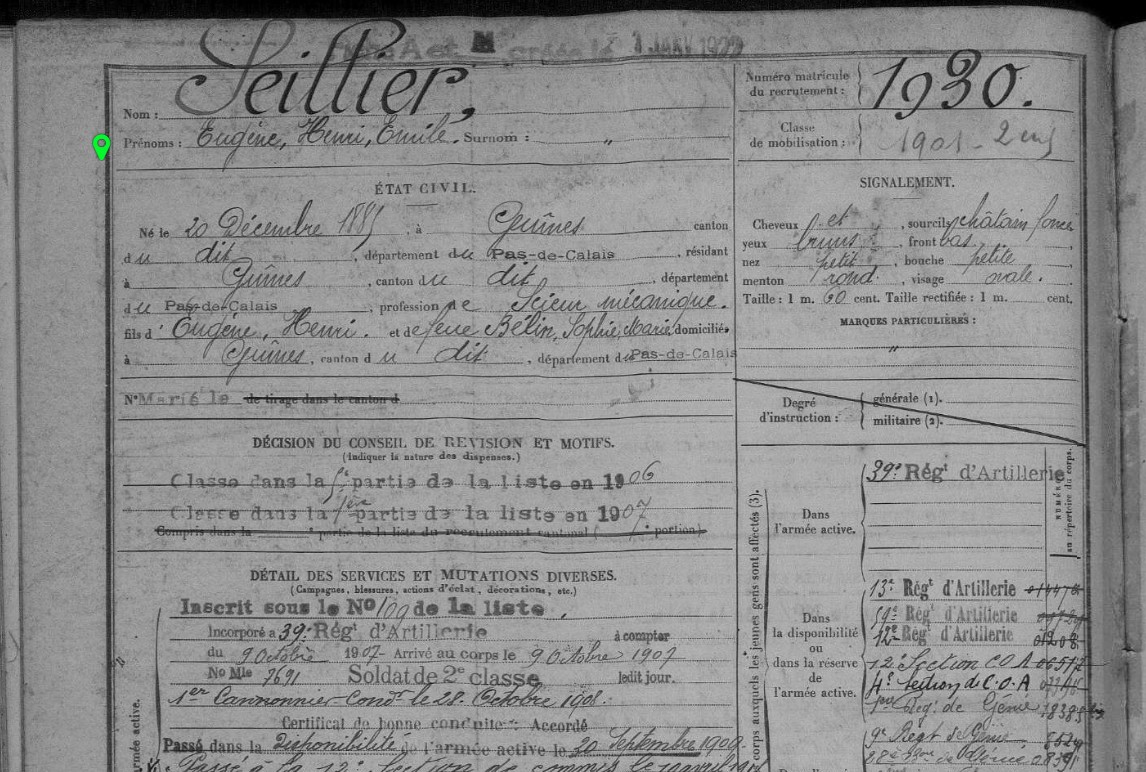 1 JANV 1922
Seillier,
Nom :
Prénoms : Eugène, Henri, Emile. Surnom : "
ÉTAT CIVIL.
Né le 20 Décembre 1885, à Guînes canton
du dit, département du Pas-de-Calais, résidant
à Guînes, canton du dit, département
du Pas-de-Calais, profession de Scieur mécanique.
fils d'Eugène, Henri. et de feue Bélin, Sophie, Marie, domiciliés
à Guînes, canton du dit, département du Pas-de-Calais
N° Marié le de tirage dans le canton d
DÉCISION DU CONSEIL DE REVISION ET MOTIFS.
(Indiquer la nature des dispenses.)
Classe dans la partie de la liste en 1906
Classe dans la 1ère partie de la liste en 1907
Compris dans la partie de la liste du recrutement cantonal ( portion)
DÉTAIL DES SERVICES ET MUTATIONS DIVERSES.
(Campagnes, blessures, actions d'éclat, décorations, etc.)
Inscrit sous le No 109 de la liste.
Incorporé a 39e Régt d'Artillerie à compter
du 9 Octobre 1907 - Arrivé au corps le 9 Octobre 1907
No Mle 7691 Soldat de 2e classe ledit jour.
1er Cannonnier-Condr le 28 Octobre 1908.
Certificat de bonne conduite : Accordé
Passé dans la Disponibilité de l'armée active le 20 Septembre 1909
Passé à la 12e Section de commis le
armée active.
Numéro matricule du recrutement : 1930.
Classe de mobilisation : 1901 -
SIGNALEMENT.
Cheveux et, sourcils châtain foncé
yeux bruns, front bas,
nez petit, bouche petite
menton rond, visage ovale.
Taille : 1 m. 60 cent. Taille rectifiée : 1 m. cent.
MARQUES PARTICULIÈRES :
"
Degré d'instruction : générale (1).
militaire (2).
corps auxquels les jeunes gens sont affectés (3).
NUMÉRO au répertoire du corps.
Dans l'armée active.
39e Régt d'Artillerie
Dans la disponibilité ou dans la réserve de l'armée active.
13e Régt d'Artillerie
59e Régt d'Artillerie
12e Régt d'Artillerie
12e Section C.O.A
4e Section de C.O.A
1er Rég. de Génie
9e Régt de Génie